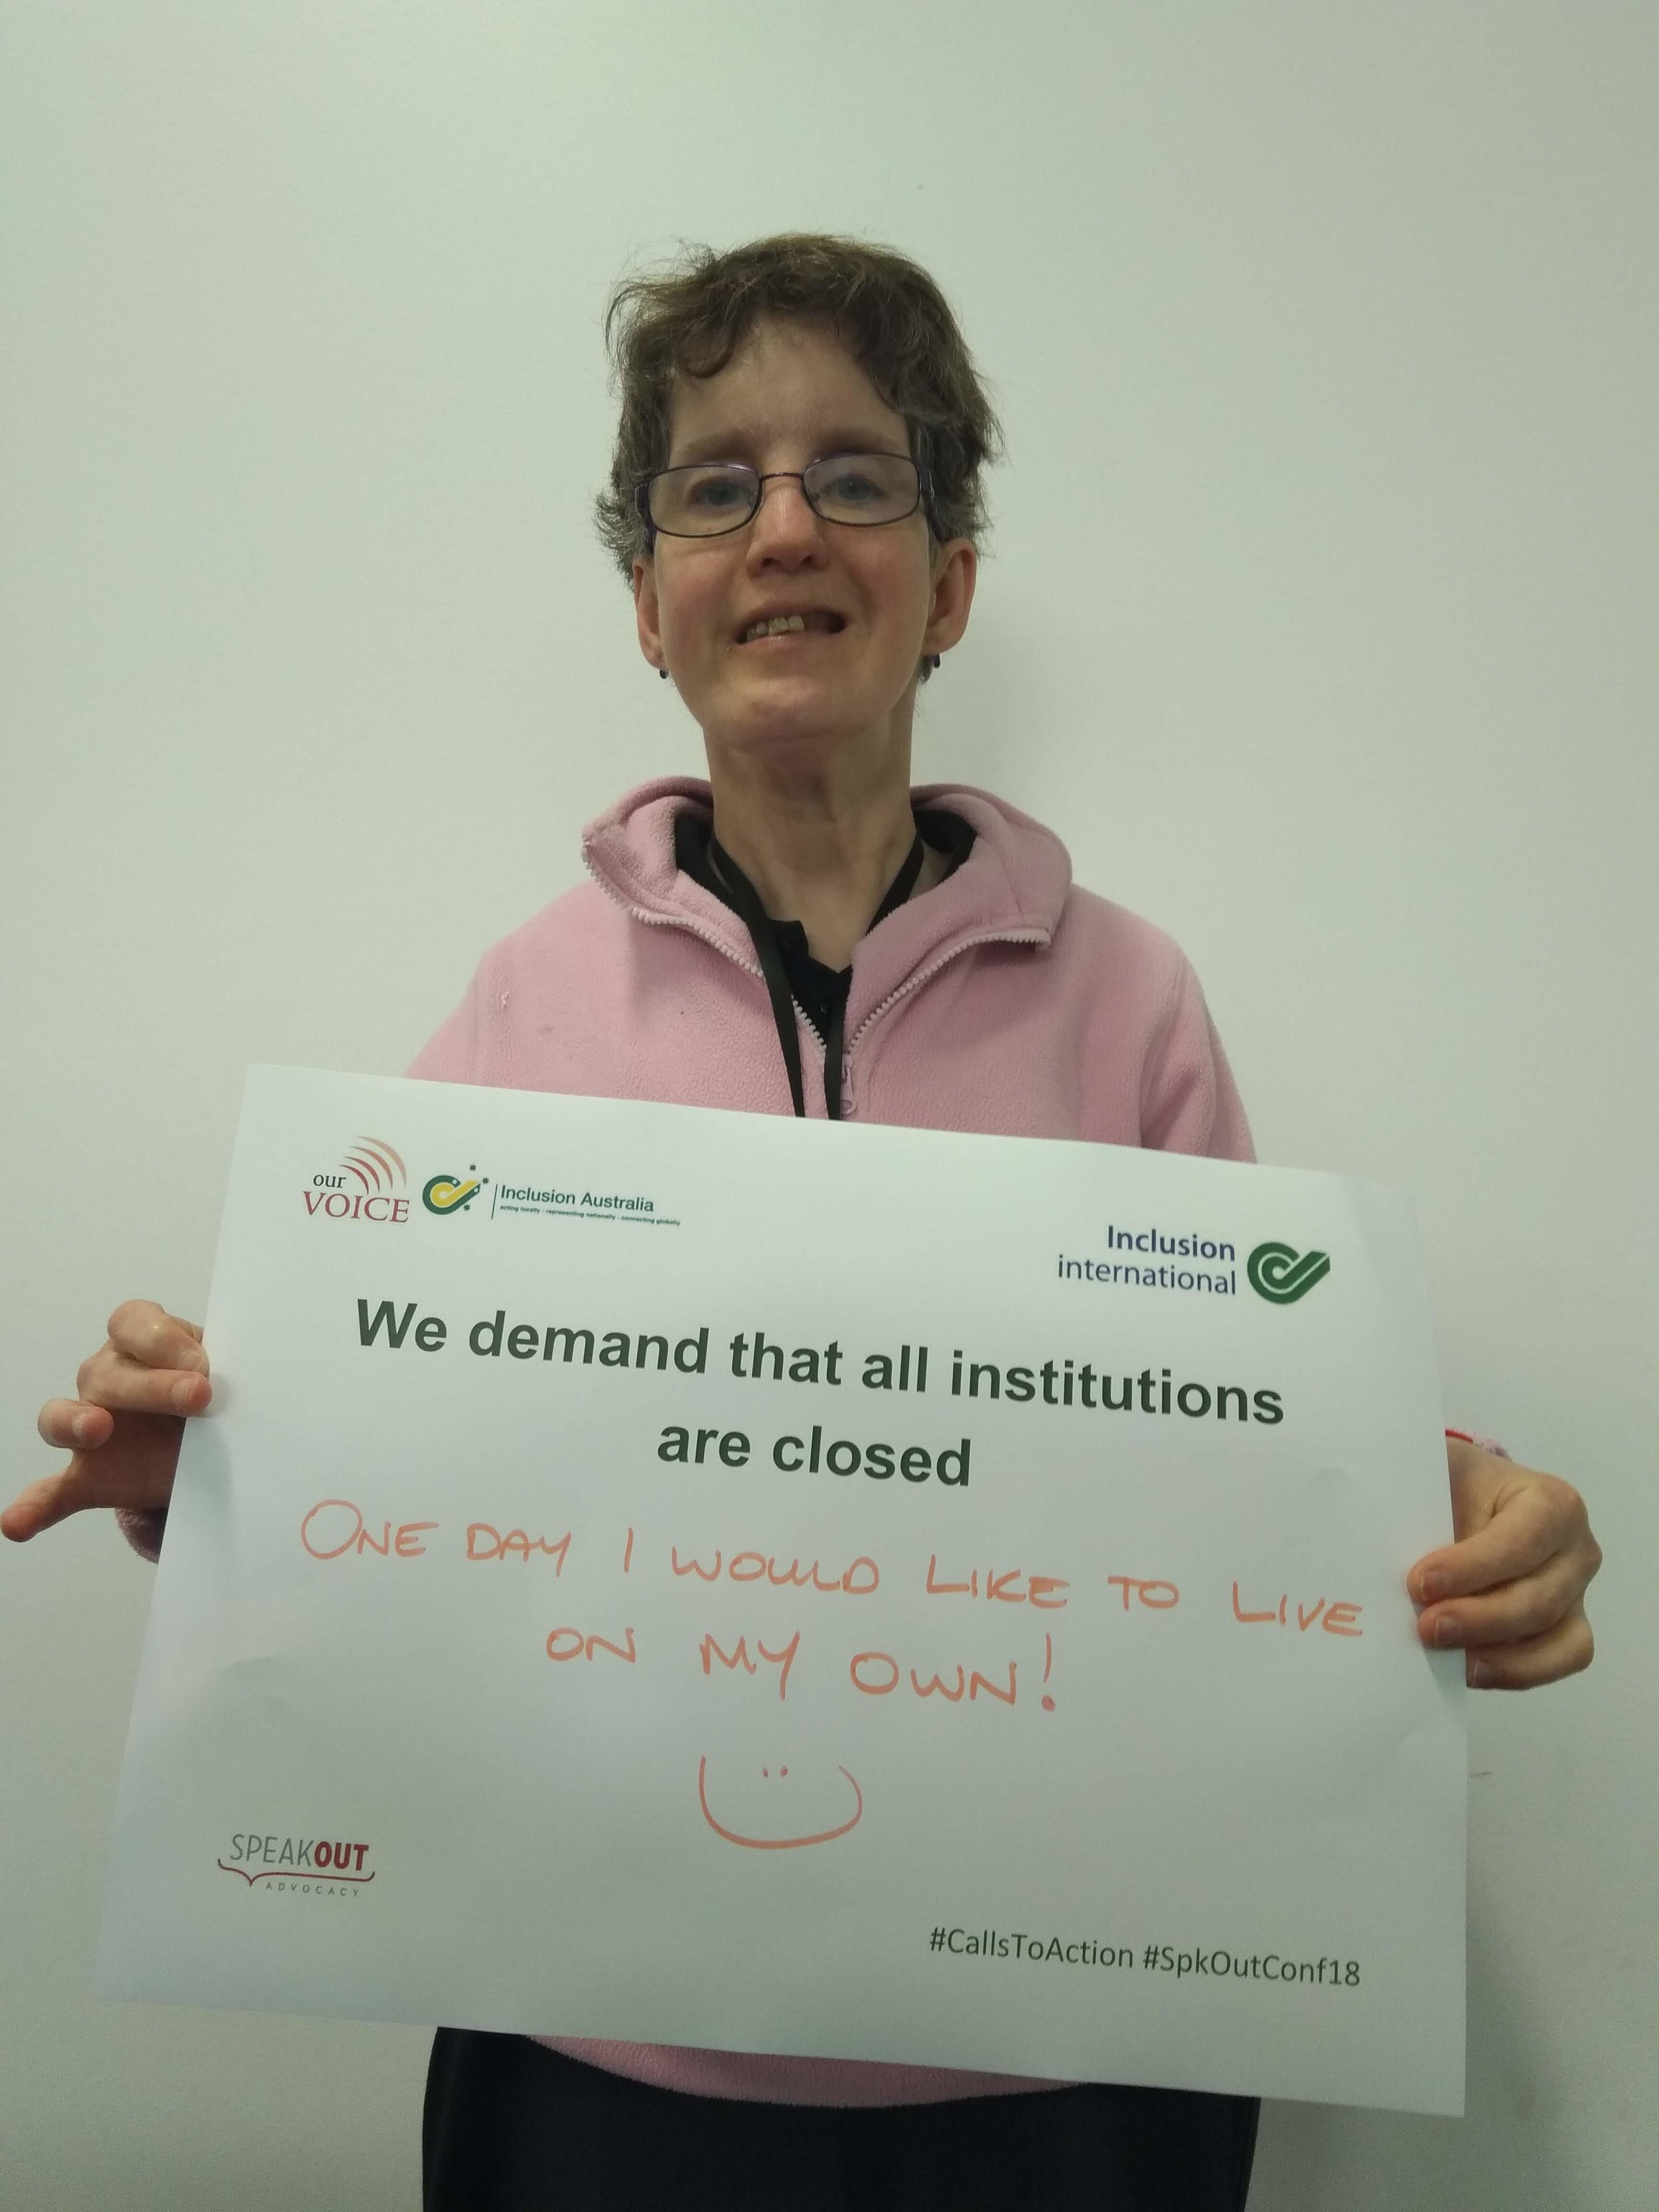 our
VOICE
Inclusion Australia
acting locally - representing nationally - connecting globally
Inclusion
international
We demand that all institutions
are closed
ONE DAY I WOULD LIKE TO LIVE
ON MY OWN!
SPEAKOUT
ADVOCACY
#CallsToAction #SpkOutConf18